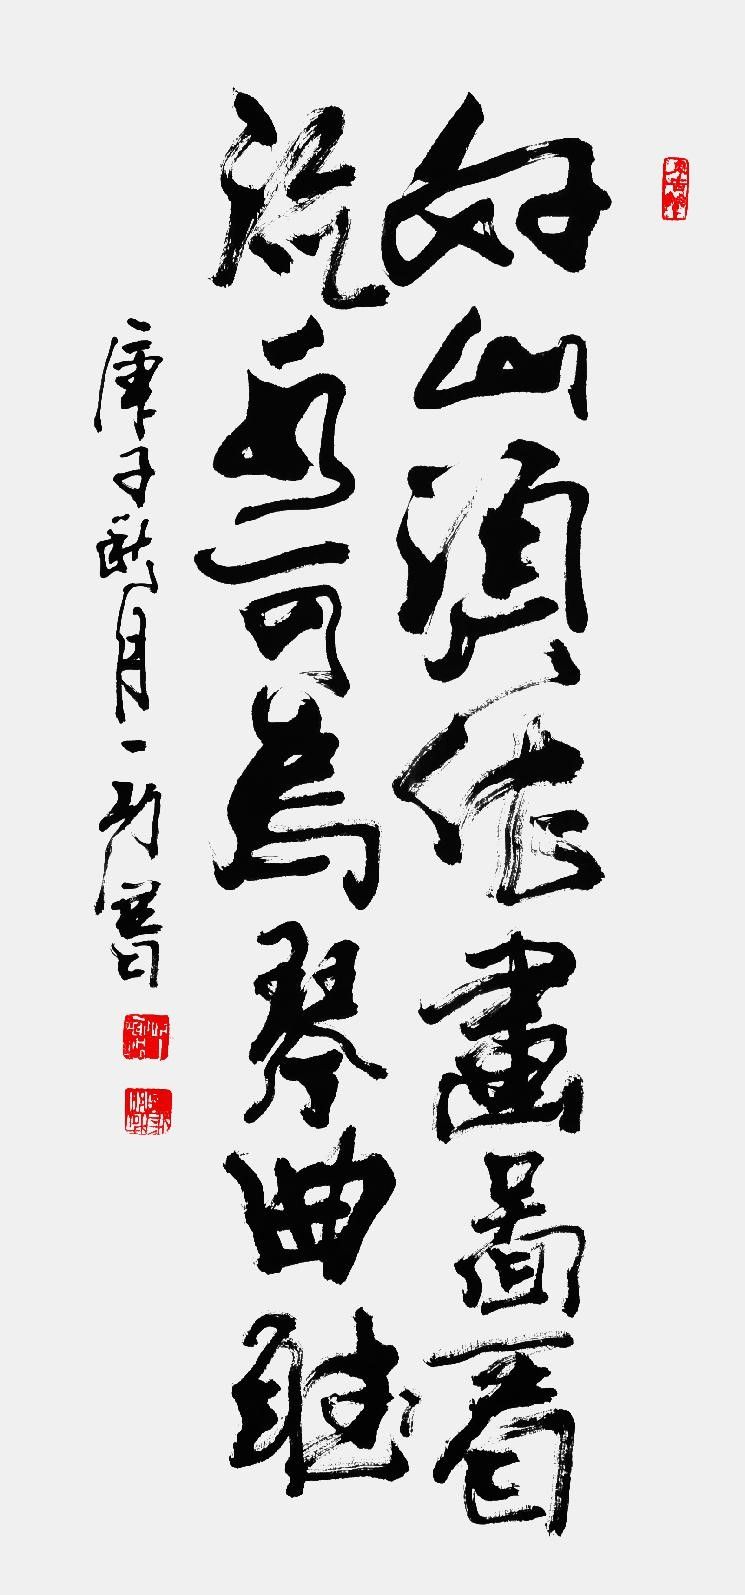 好山須作畫圖看
流泉可為琴曲聽
庚子秋月一書